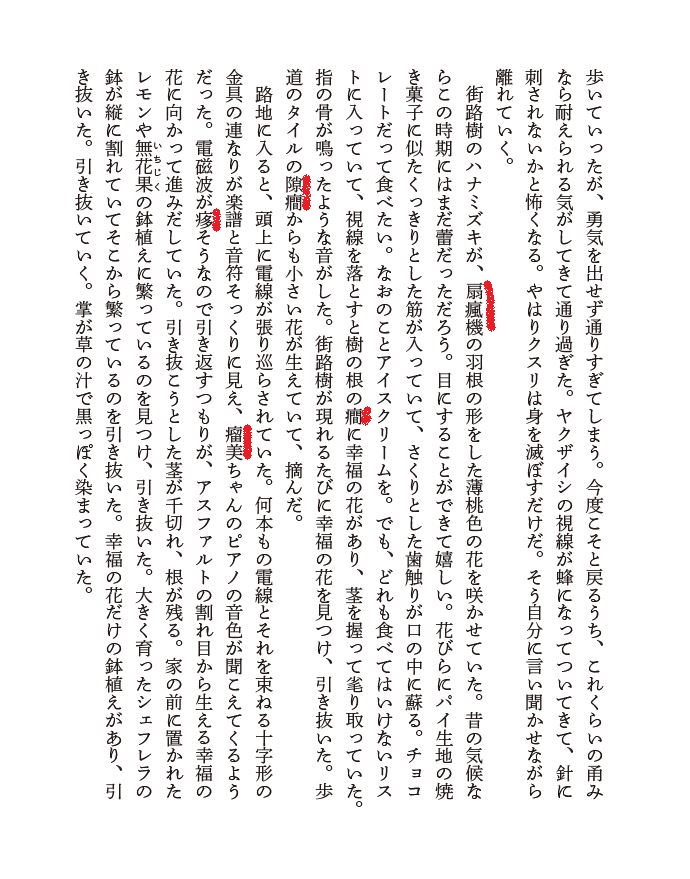 歩いていったが、勇気を出せず通りすぎてしまう。今度こそと戻るうち、これくらいの甬み
なら耐えられる気がしてきて通り過ぎた。ヤクザイシの視線が蜂になってついてきて、針に
刺されないかと怖くなる。やはりクスリは身を滅ぼすだけだ。そう自分に言い聞かせながら
離れていく。
街路樹のハナミズキが、扇瘋機の羽根の形をした薄桃色の花を咲かせていた。昔の気候な
らこの時期にはまだ蕾だっただろう。目にすることができて嬉しい。花びらにパイ生地の焼
き菓子に似たくっきりとした筋が入っていて、さくりとした歯触りが口の中に蘇る。チョコ
レートだって食べたい。なおのことアイスクリームを。でも、どれも食べてはいけないリス
トに入っていて、視線を落とすと樹の根の癎に幸福の花があり、茎を握って毟り取っていた。
指の骨が鳴ったような音がした。街路樹が現れるたびに幸福の花を見つけ、引き抜いた。歩
道のタイルの隙癎からも小さい花が生えていて、摘んだ。
路地に入ると、頭上に電線が張り巡らされていた。何本もの電線とそれを束ねる十字形の
金具の連なりが楽譜と音符そっくりに見え、瘤美ちゃんのピアノの音色が聞こえてくるよう
だった。電磁波が疼そうなので引き返すつもりが、アスファルトの割れ目から生える幸福の
花に向かって進みだしていた。引き抜こうとした茎が千切れ、根が残る。家の前に置かれた
レモンや無花果の鉢植えに繁っているのを見つけ、引き抜いた。大きく育ったシェフレラの
いちじく
鉢が縦に割れていてそこから繁っているのを引き抜いた。幸福の花だけの鉢植えがあり、引
き抜いた。引き抜いていく。掌が草の汁で黒っぽく染まっていた。